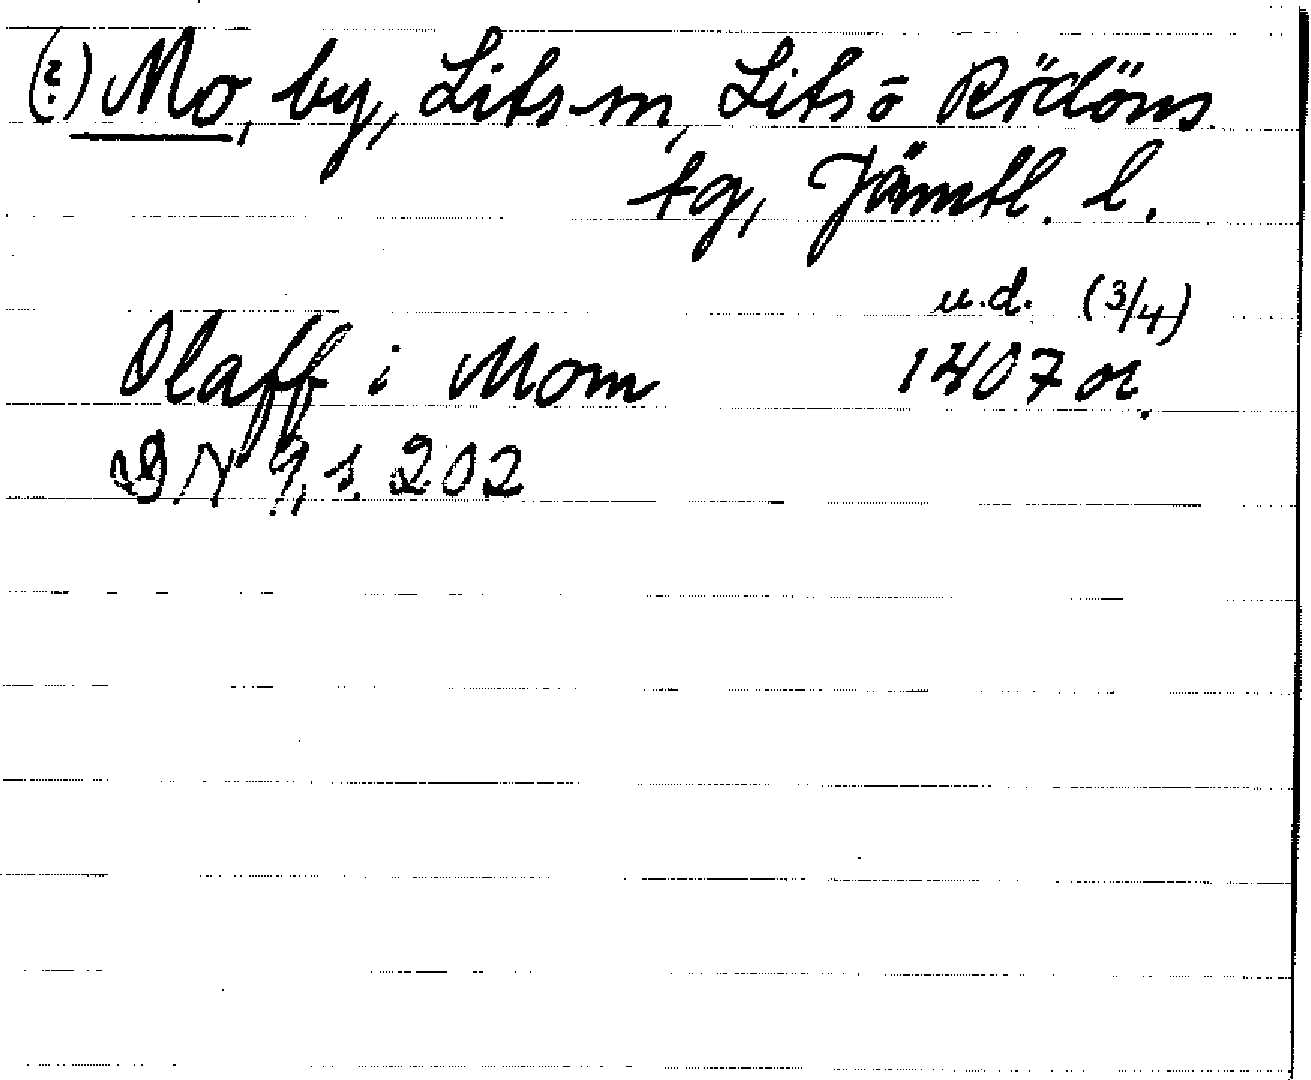 (?) Mo, by, Lits sn, Lits o Rödöns
tg, Jämtl. l.
u.d. (3/4)
Olaff i Mom 1407 or.
DN 9, s. 202